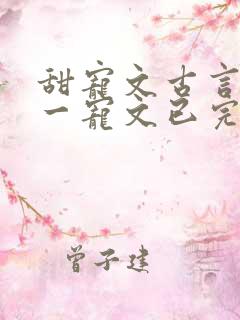 甜寵文古言
一寵文已完
曾子建